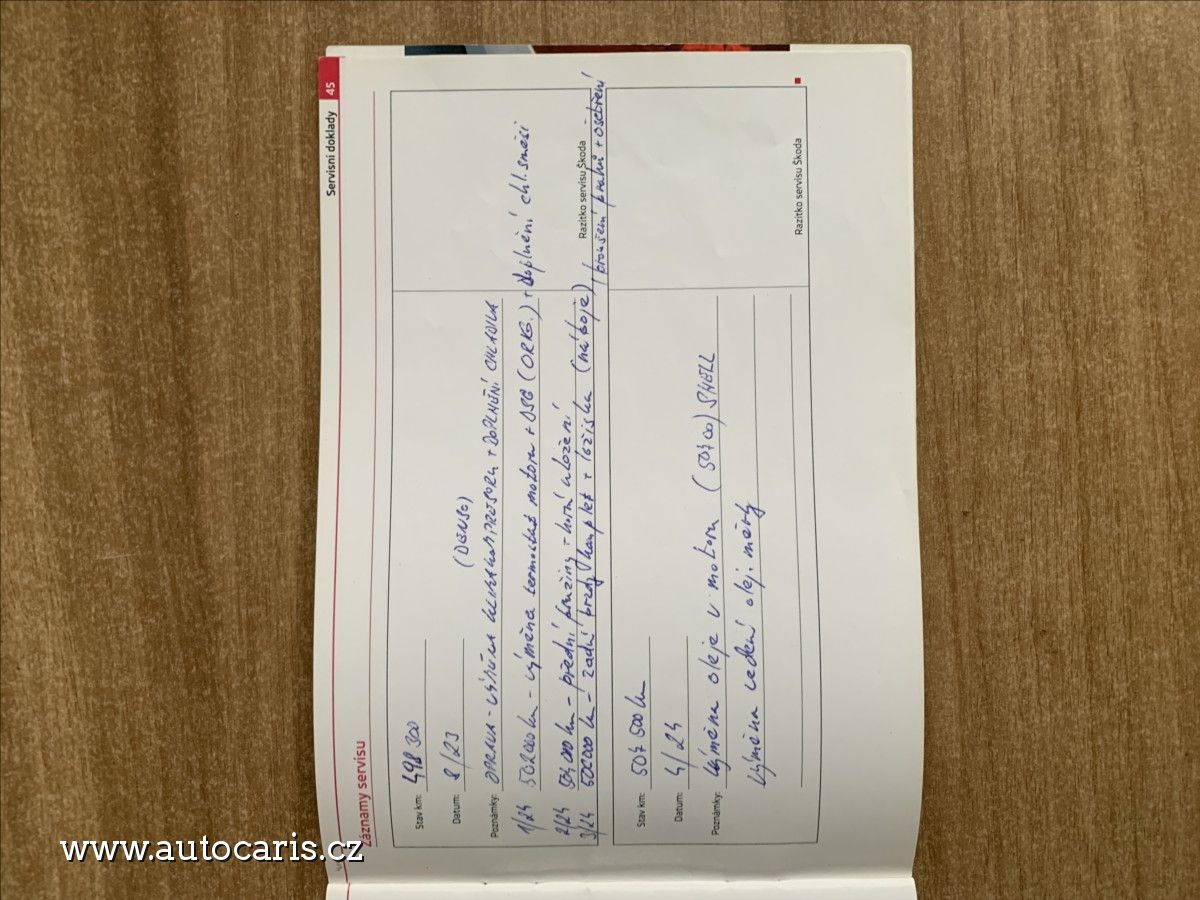 Servisní doklady 45
Záznamy servisu
Stav km: 498 300
Datum: 8/23
(DENSO)
Poznámky: OPRAVA - VÝMĚNA KLIMAKOMPRESORU + DOPLNĚNÍ CHLADIVA
1/24 502 000 km - výměna termostat motoru + DSG (ORIG.) + doplnění chl. směsi
2/24 504 000 km - přední pružiny + horní uložení
3/24 502000 km - zadní brzdy komplet + ložiska (náboje)
broušení prahů + ošetření
Razítko servisu Škoda
Stav km: 504 500 km
Datum: 4/24
Poznámky: Výměna oleje v motoru (504 00) SHELL
Výměna vedení olej. měrky
Razítko servisu Škoda
www.autocaris.cz